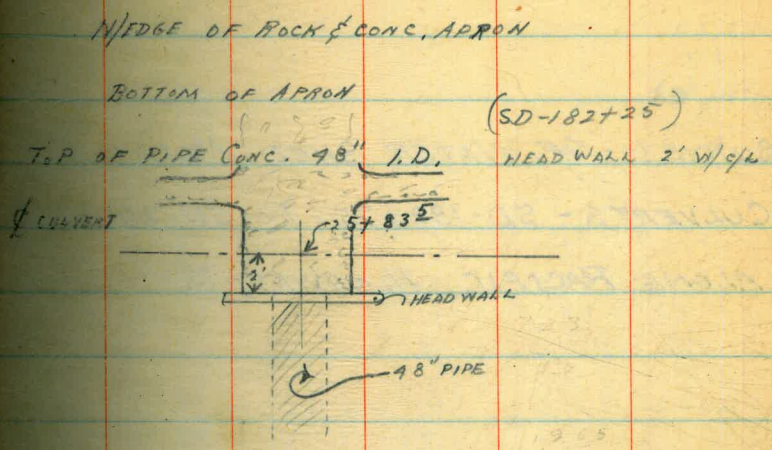 N/EDGE OF ROCK & CONC. APRON
BOTTOM OF APRON
(SD-182+25)
TOP OF PIPE CONC. 48" I.D. HEAD WALL 2' W/C/L
℄ CULVERT
25+83⁵
2'
HEADWALL
48" PIPE